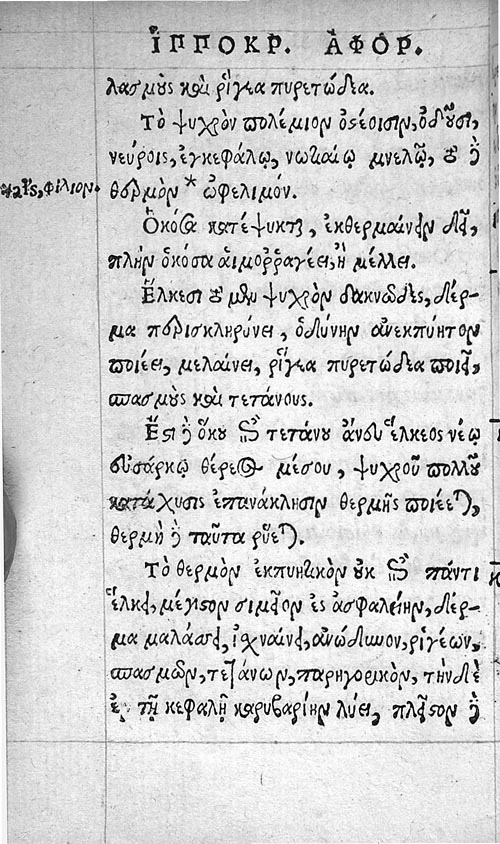 ἹΠΠΟΚΡ. ἈΦΟΡ.
λασμὺς καὶ ῥίγεα πυρετώδεα.
Τὸ ψυχρὸν πολέμιον ὀστέοισιν, ὀδοῦσι,
νεύροις, ἐγκεφάλῳ, νωτιαίῳ μυελῷ, τὸ δὲ
θερμὸν * ὠφελιμόν.
φίλιον.
Ὁκόσα κατέψυκται, ἐκθερμαίνειν δεῖ,
πλὴν ὁκόσα αἱμοῤῥαγέει, ἢ μέλλει.
Ἕλκεσι τὸ μὲν ψυχρὸν δακνῶδες, δέρ-
μα περισκληρύνει, ὀδύνην ἀνεκπύητον
ποιέει, μελαίνει, ῥίγεα πυρετώδεα ποιεῖ,
σπασμὺς καὶ τετάνους.
Ἔστι δὲ ὅκου ἐπὶ τετάνου ἄνευ ἕλκεος νέῳ
εὐσάρκῳ θέρεος μέσου, ψυχροῦ πολλοῦ
κατάχυσις ἐπανάκλησιν θερμῆς ποιέεται,
θερμὴ δὲ ταῦτα ῥύεται.
Τὸ θερμὸν ἐκπυητικὸν οὐκ ἐπὶ παντὶ
ἕλκει, μέγιστον σημεῖον ἐς ἀσφαλείην, δέρ-
μα μαλάσσει, ἰσχναίνει, ἀνώδυνον, ῥιγέων,
σπασμῶν, τετάνων, παρηγορικὸν, τὴν δὲ
ἐν τῇ κεφαλῇ καρυβαρίην λύει, πλεῖστον δὲ